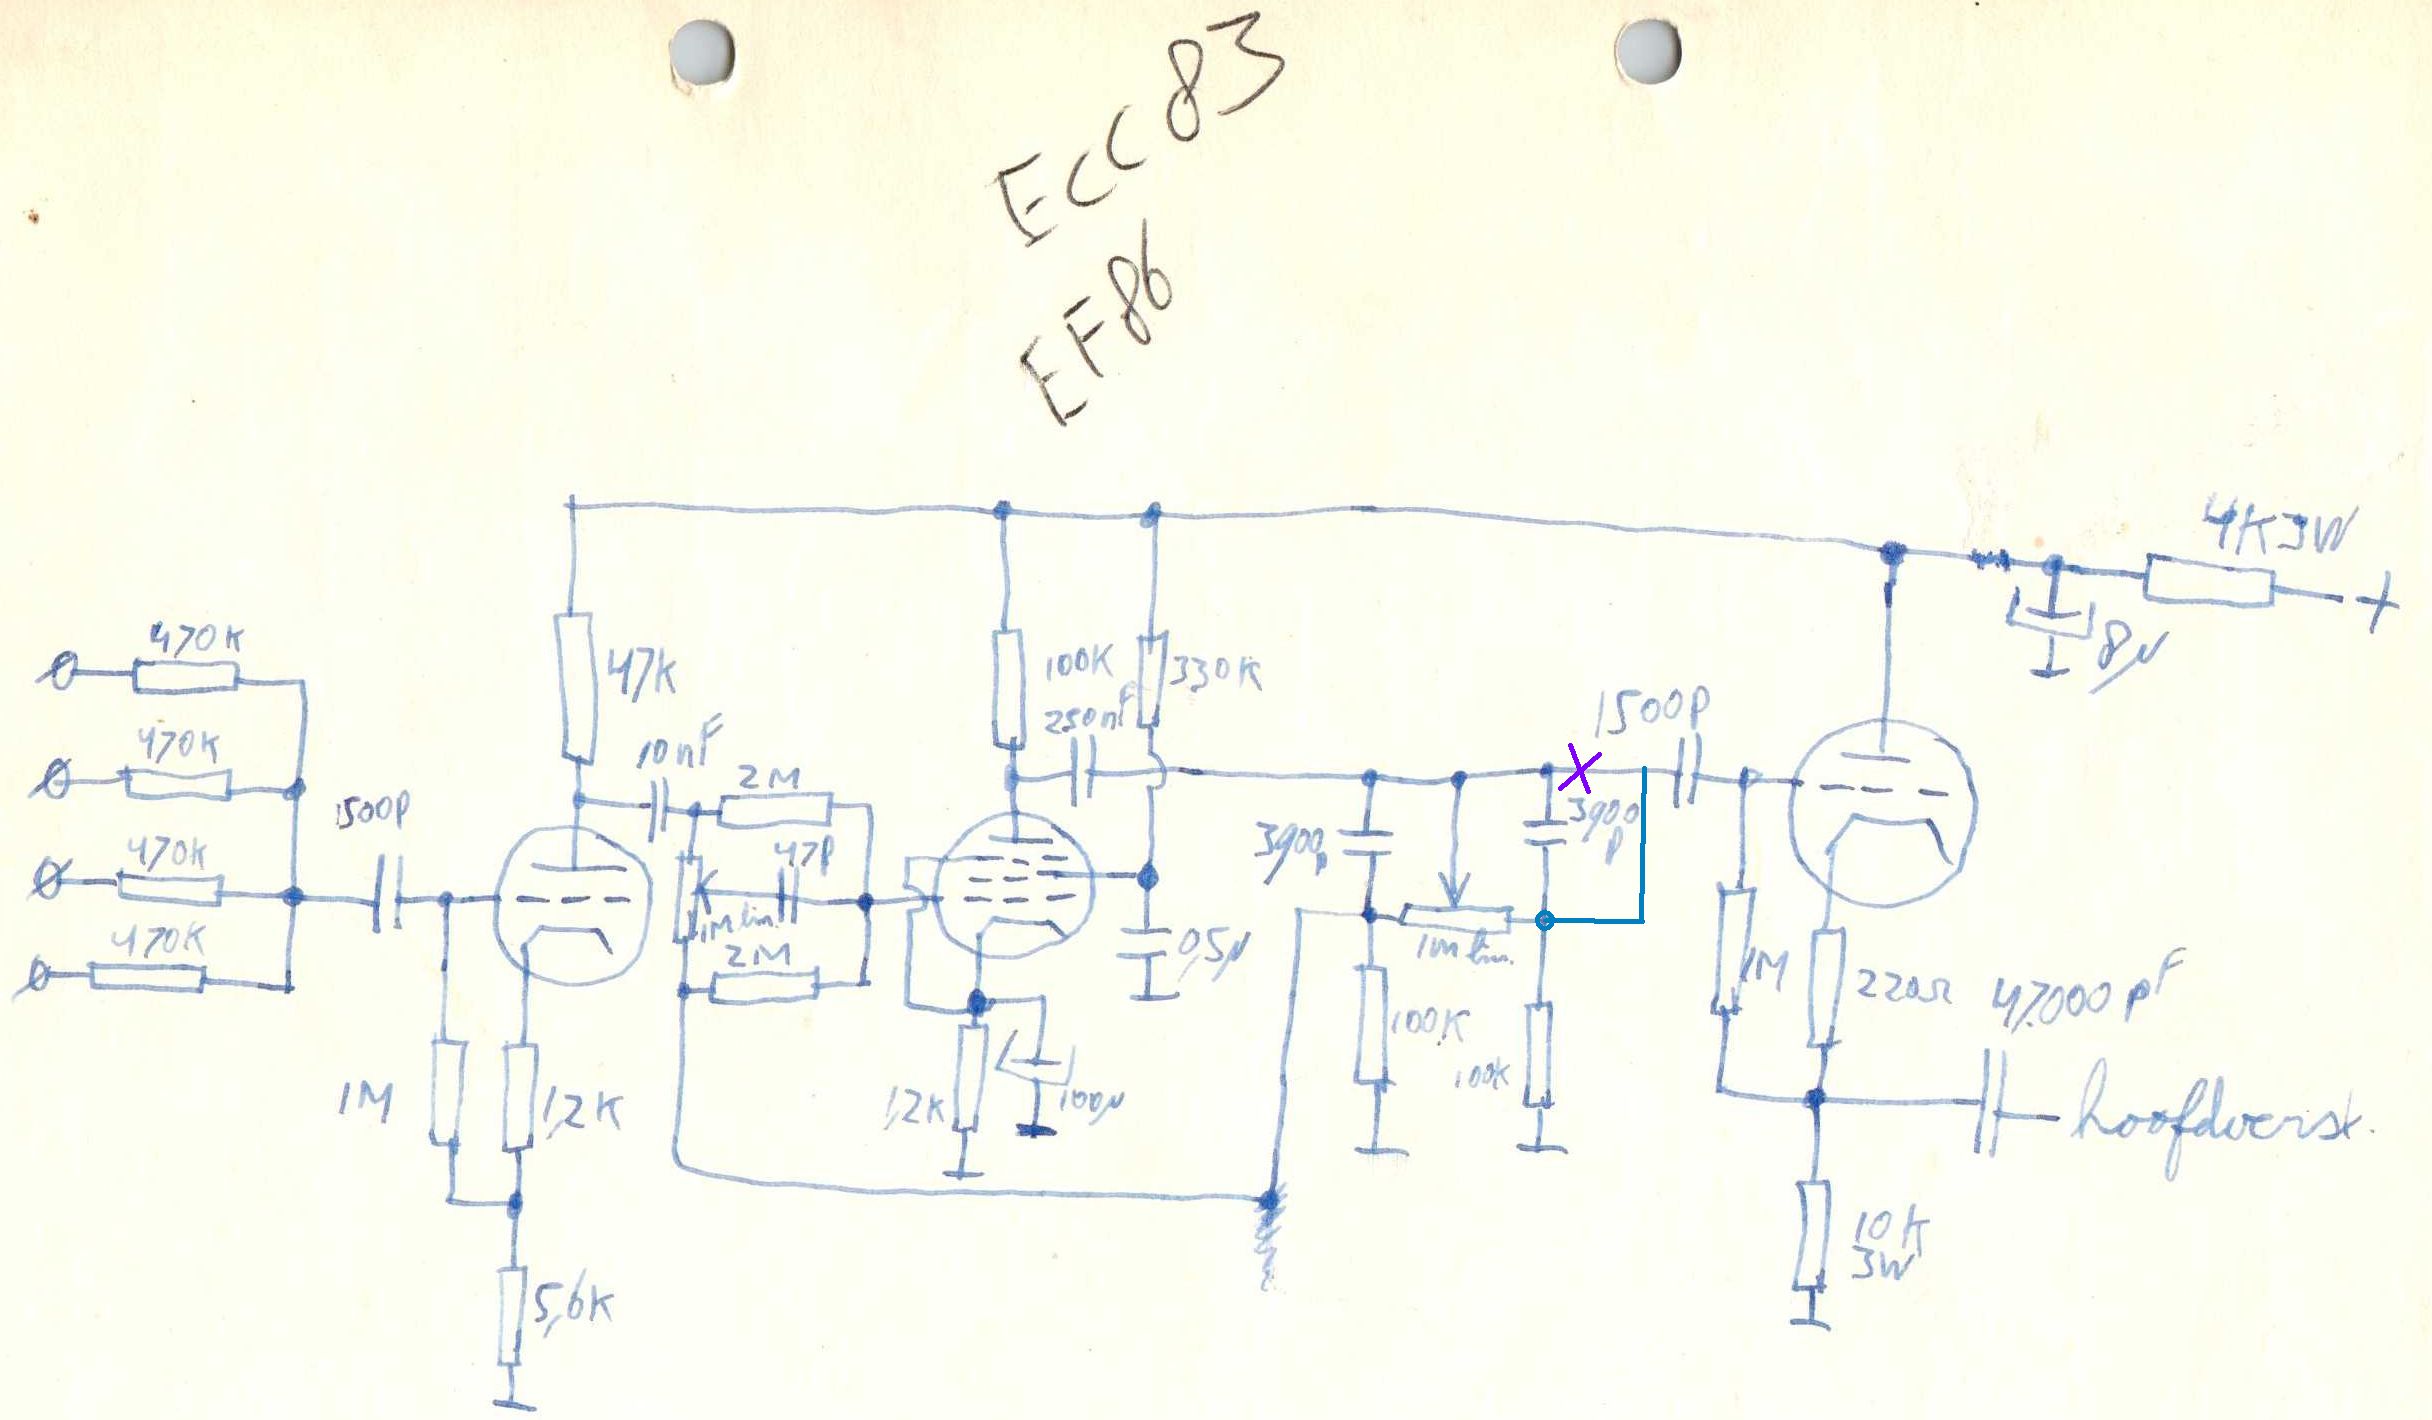 ECC83
EF86
4K3W
+
8µ
470K
470K
470K
470K
1500p
47K
10nF
2M
47p
1M lin.
2M
1M
1,2K
5,6K
100K
330K
250nF
0,5µ
1,2K
100µ
3900p
3900
p
1m lin.
100K
100K
1500p
X
1M
220Ω
47.000 pF
hoofdverst.
10K
3W